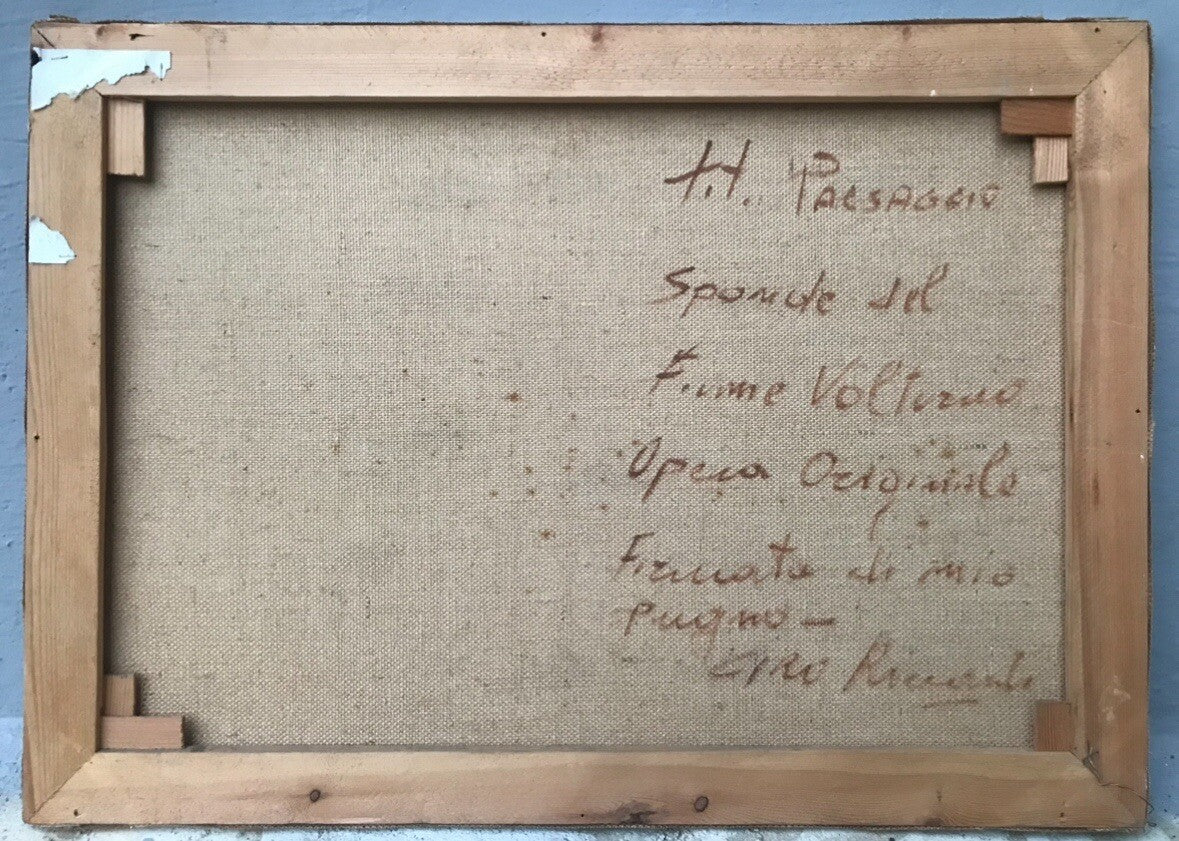 H. PAESAGGIO
Sponde del
Fiume Volturno
Opera Originale
Firmata di mio
pugno—
CIRO